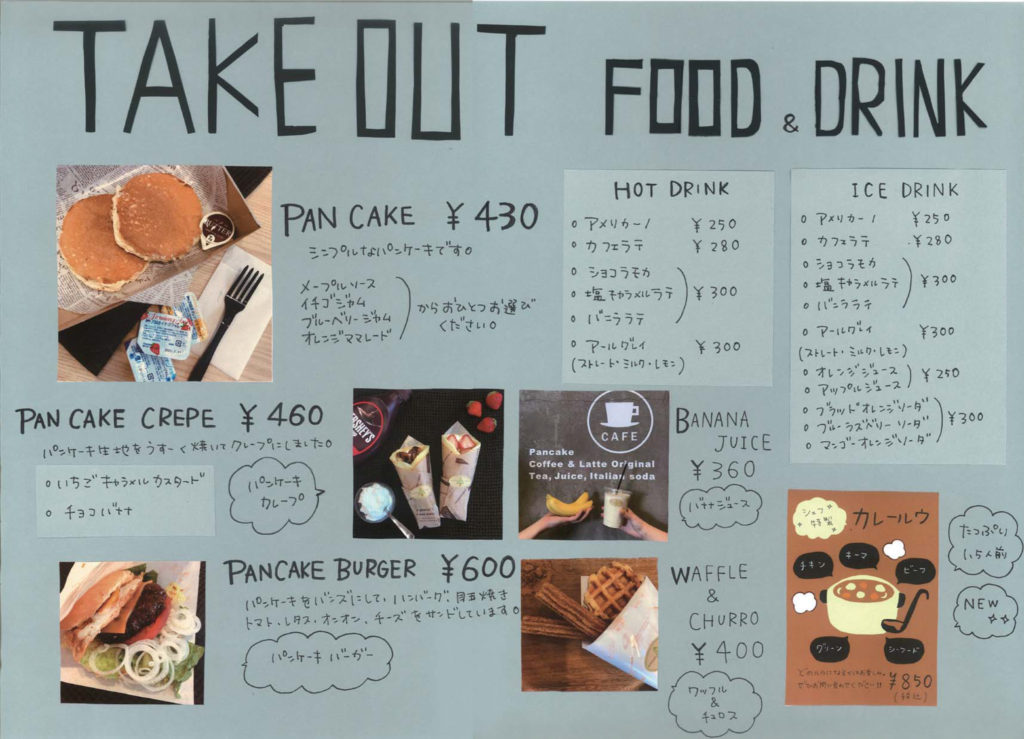 TAKE OUT FOOD & DRINK
PAN CAKE ¥430
シンプルなパンケーキです。
メープルソース
イチゴジャム
ブルーベリージャム
オレンジママレード
からおひとつお選び
ください。
HOT DRINK
アメリカーノ ¥250
カフェラテ ¥280
ショコラモカ
塩キャラメルラテ ¥300
バニララテ
アールグレイ ¥300
(ストレート・ミルク・レモン)
ICE DRINK
アメリカーノ ¥250
カフェラテ ¥280
ショコラモカ
塩キャラメルラテ ¥300
バニララテ
アールグレイ ¥300
(ストレート・ミルク・レモン)
オレンジジュース
アップルジュース ¥250
ブラッドオレンジソーダ
ブルーラズベリーソーダ ¥300
マンゴーオレンジソーダ
PAN CAKE CREPE ¥460
パンケーキ生地をうすーく焼いてクレープにしました。
いちごキャラメルカスタード
チョコバナナ
パンケーキ
クレープ
HERSHEY'S
CAFE
Pancake
Coffee & Latte Original
Tea, Juice, Italian soda
BANANA
JUICE
¥360
バナナジュース
PANCAKE BURGER ¥600
パンケーキをバンズにして、ハンバーグ、目玉焼き
トマト、レタス、オニオン、チーズをサンドしています。
パンケーキバーガー
WAFFLE
&
CHURRO
¥400
ワッフル
&
チュロス
シェフ
特製
カレールウ
チキン
キーマ
ビーフ
グリーン
シーフード
ぜひお問い合わせください!!
¥850
(税込)
たっぷり
1.5人前
NEW